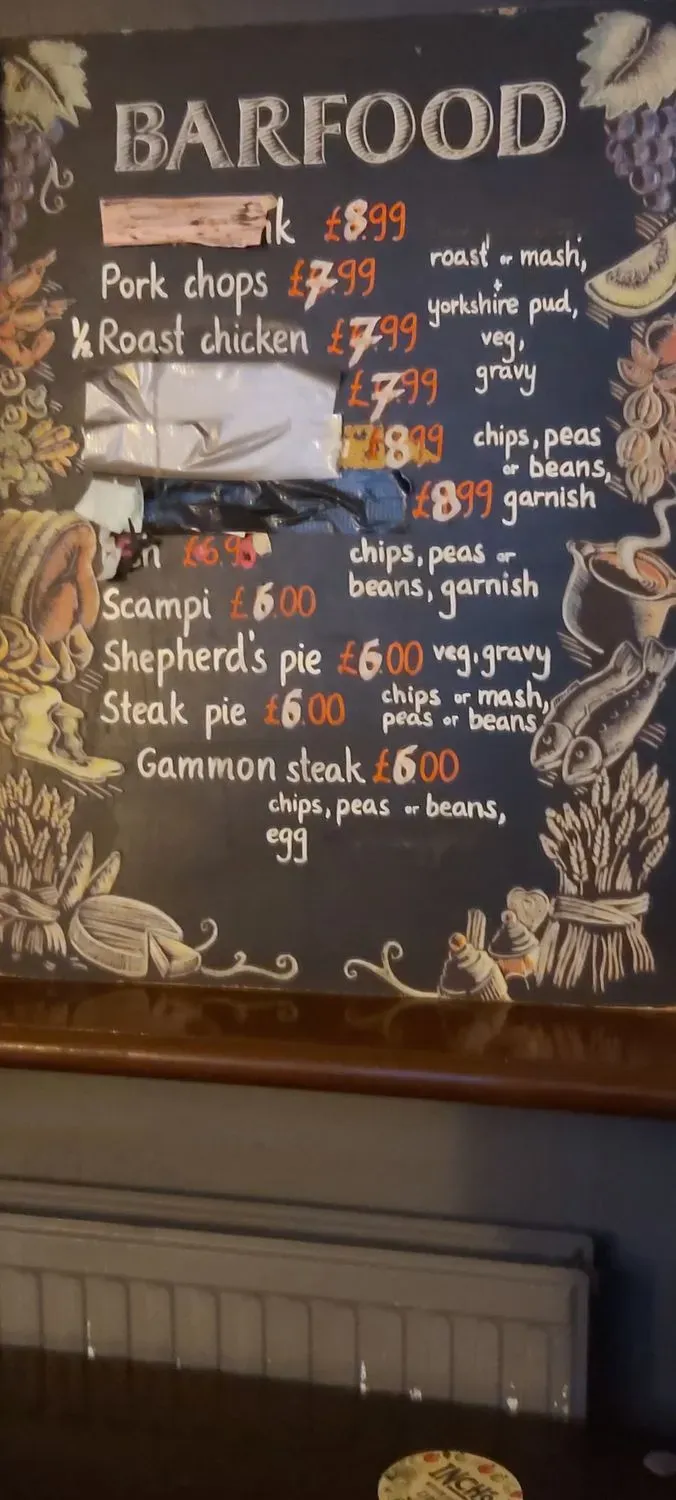 BARFOOD
k £8.99
Pork chops £7.99
roast or mash,
+
yorkshire pud,
veg,
gravy
½ Roast chicken £7.99
£7.99
£8.99
chips, peas
or beans,
garnish
£8.99
n £6.9
chips, peas or
beans, garnish
Scampi £6.00
Shepherd's pie £6.00 veg, gravy
Steak pie £6.00
chips or mash,
peas or beans
Gammon steak £6.00
chips, peas or beans,
egg
INCH'S